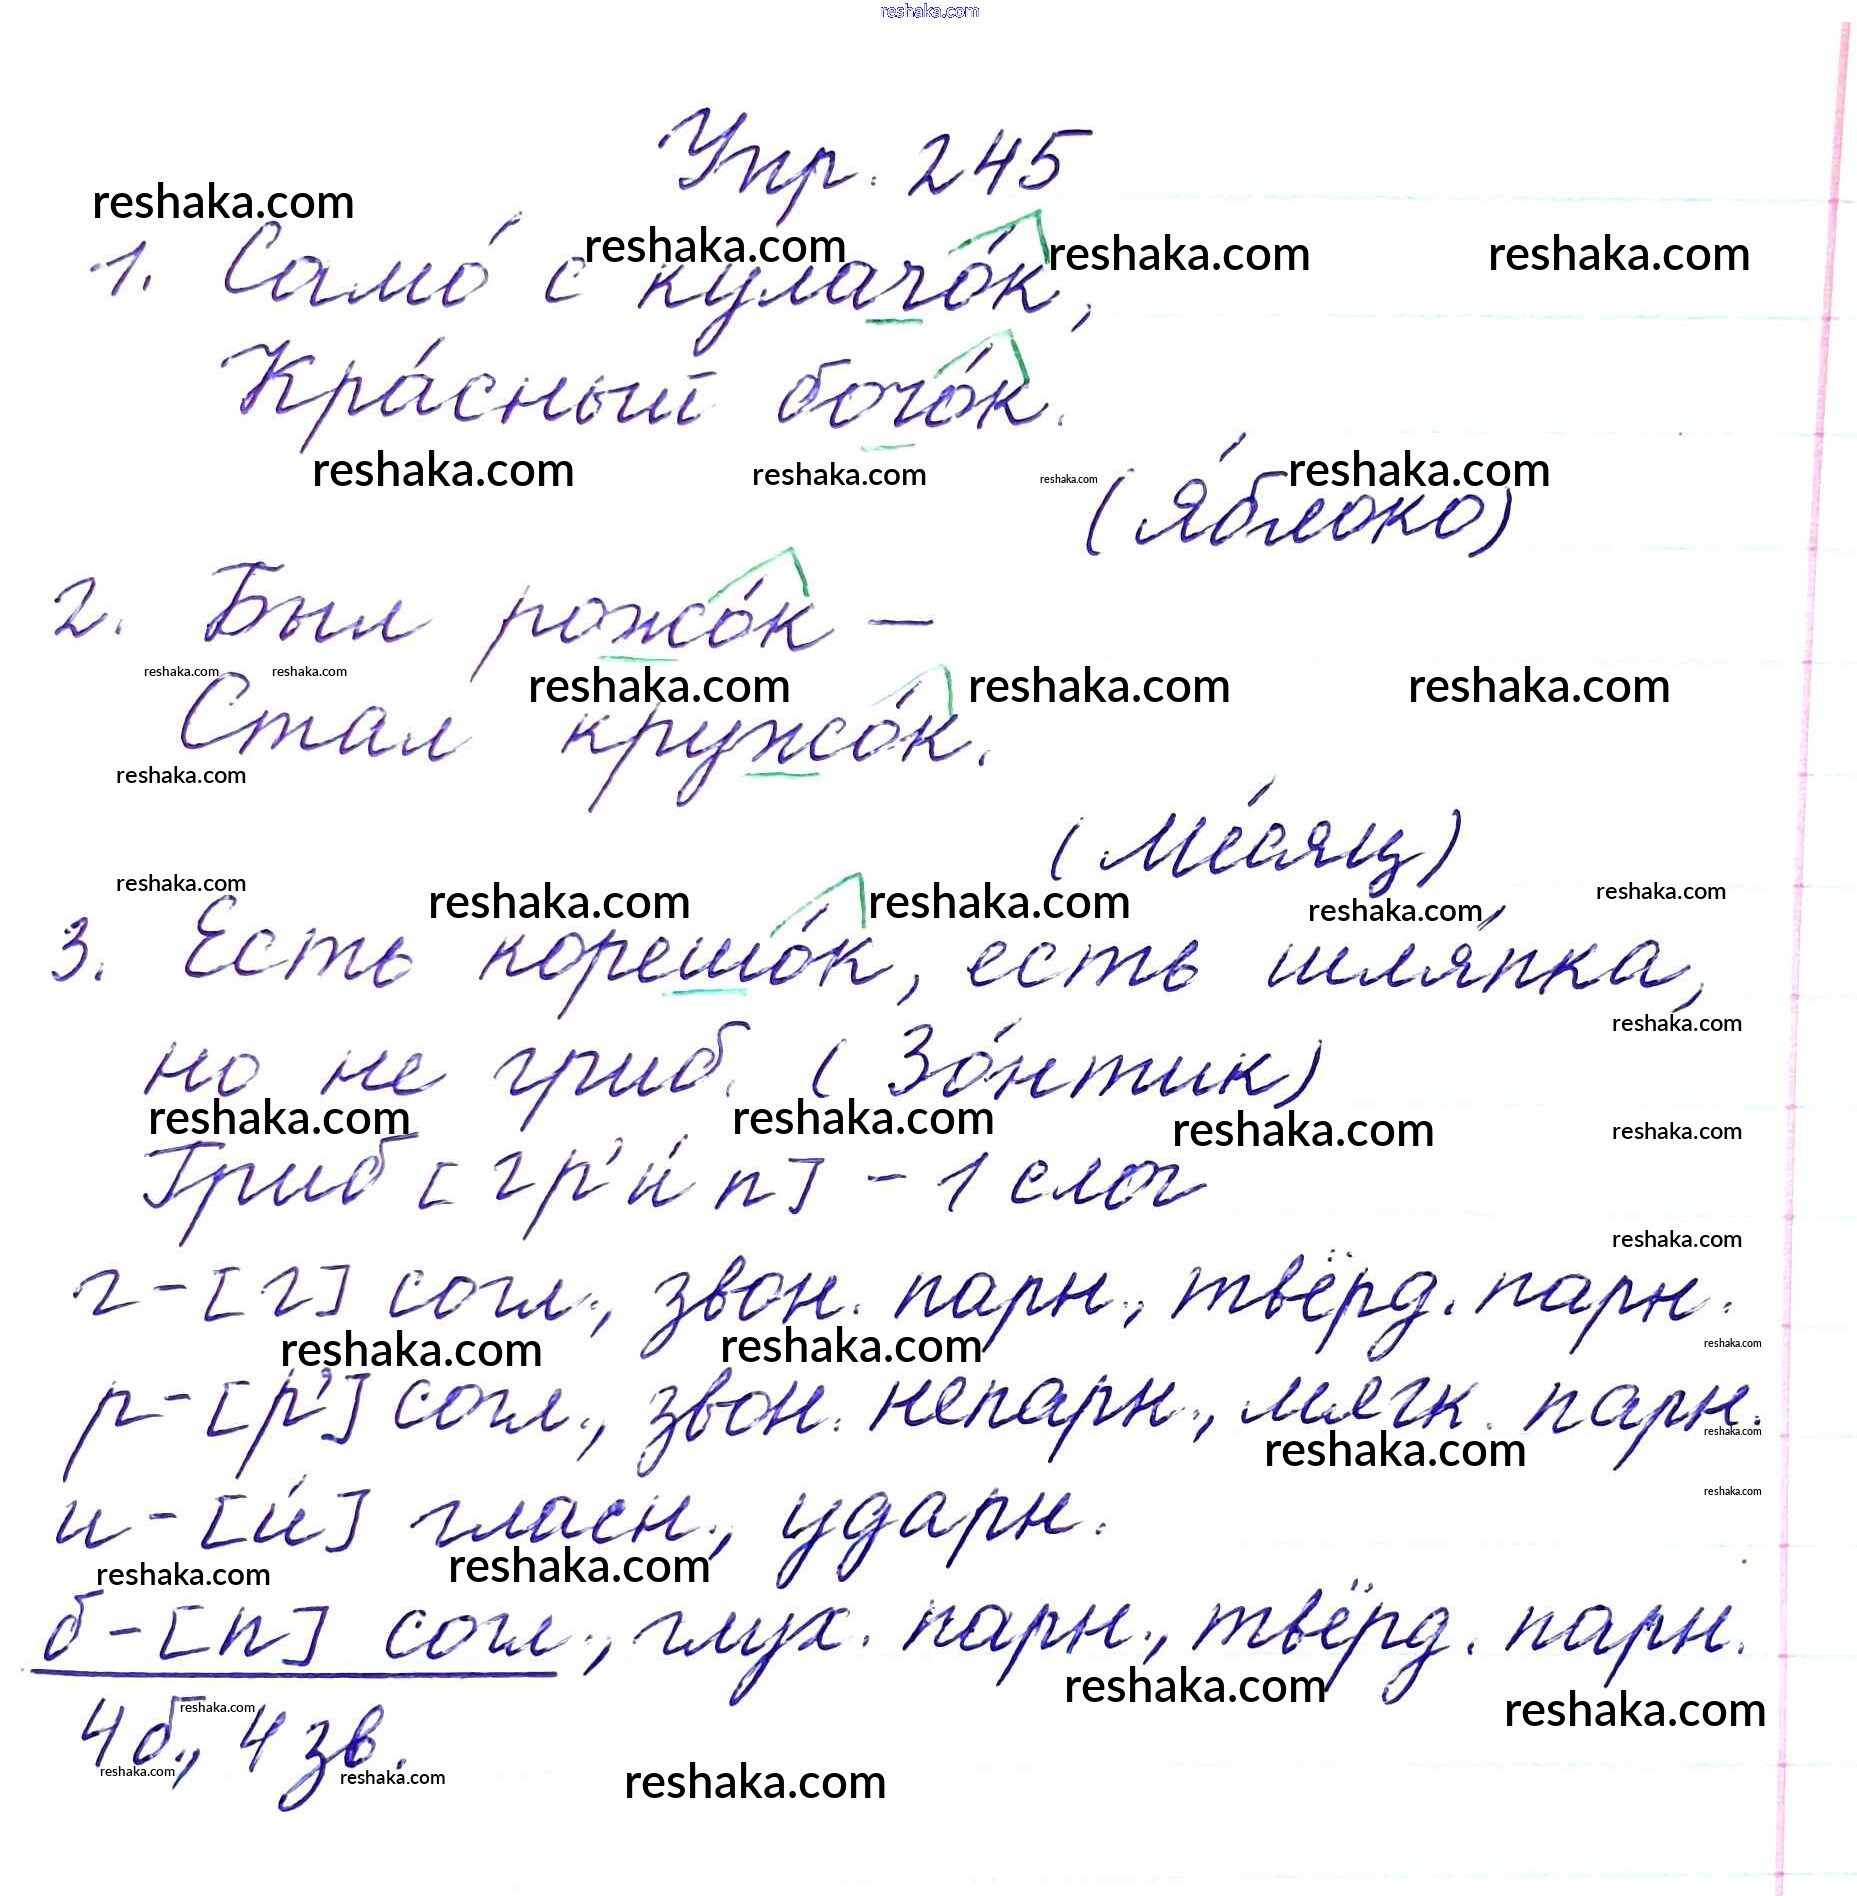 reshaka.com
Упр. 245
reshaka.com
reshaka.com reshaka.com reshaka.com
1. Само́ с кулачо́к,
Кра́сный бочо́к.
reshaka.com reshaka.com reshaka.com reshaka.com
(Я́блоко)
2. Был рожо́к –
reshaka.com reshaka.com reshaka.com reshaka.com reshaka.com
Стал кружо́к.
reshaka.com
(Ме́сяц)
reshaka.com reshaka.com reshaka.com reshaka.com reshaka.com
3. Есть корешо́к, есть шля́пка,
reshaka.com
но не гриб. (Зо́нтик)
reshaka.com reshaka.com reshaka.com reshaka.com
Гриб [гр'и́п] - 1 слог
reshaka.com
г - [г] согл., звон. парн., твёрд. парн.
reshaka.com reshaka.com reshaka.com
р - [р'] согл., звон. непарн., мягк. парн.
reshaka.com reshaka.com
reshaka.com
и - [и́] гласн., ударн.
reshaka.com reshaka.com
б - [п] согл., глух. парн., твёрд. парн.
reshaka.com reshaka.com
reshaka.com
4 б., 4 зв.
reshaka.com reshaka.com reshaka.com